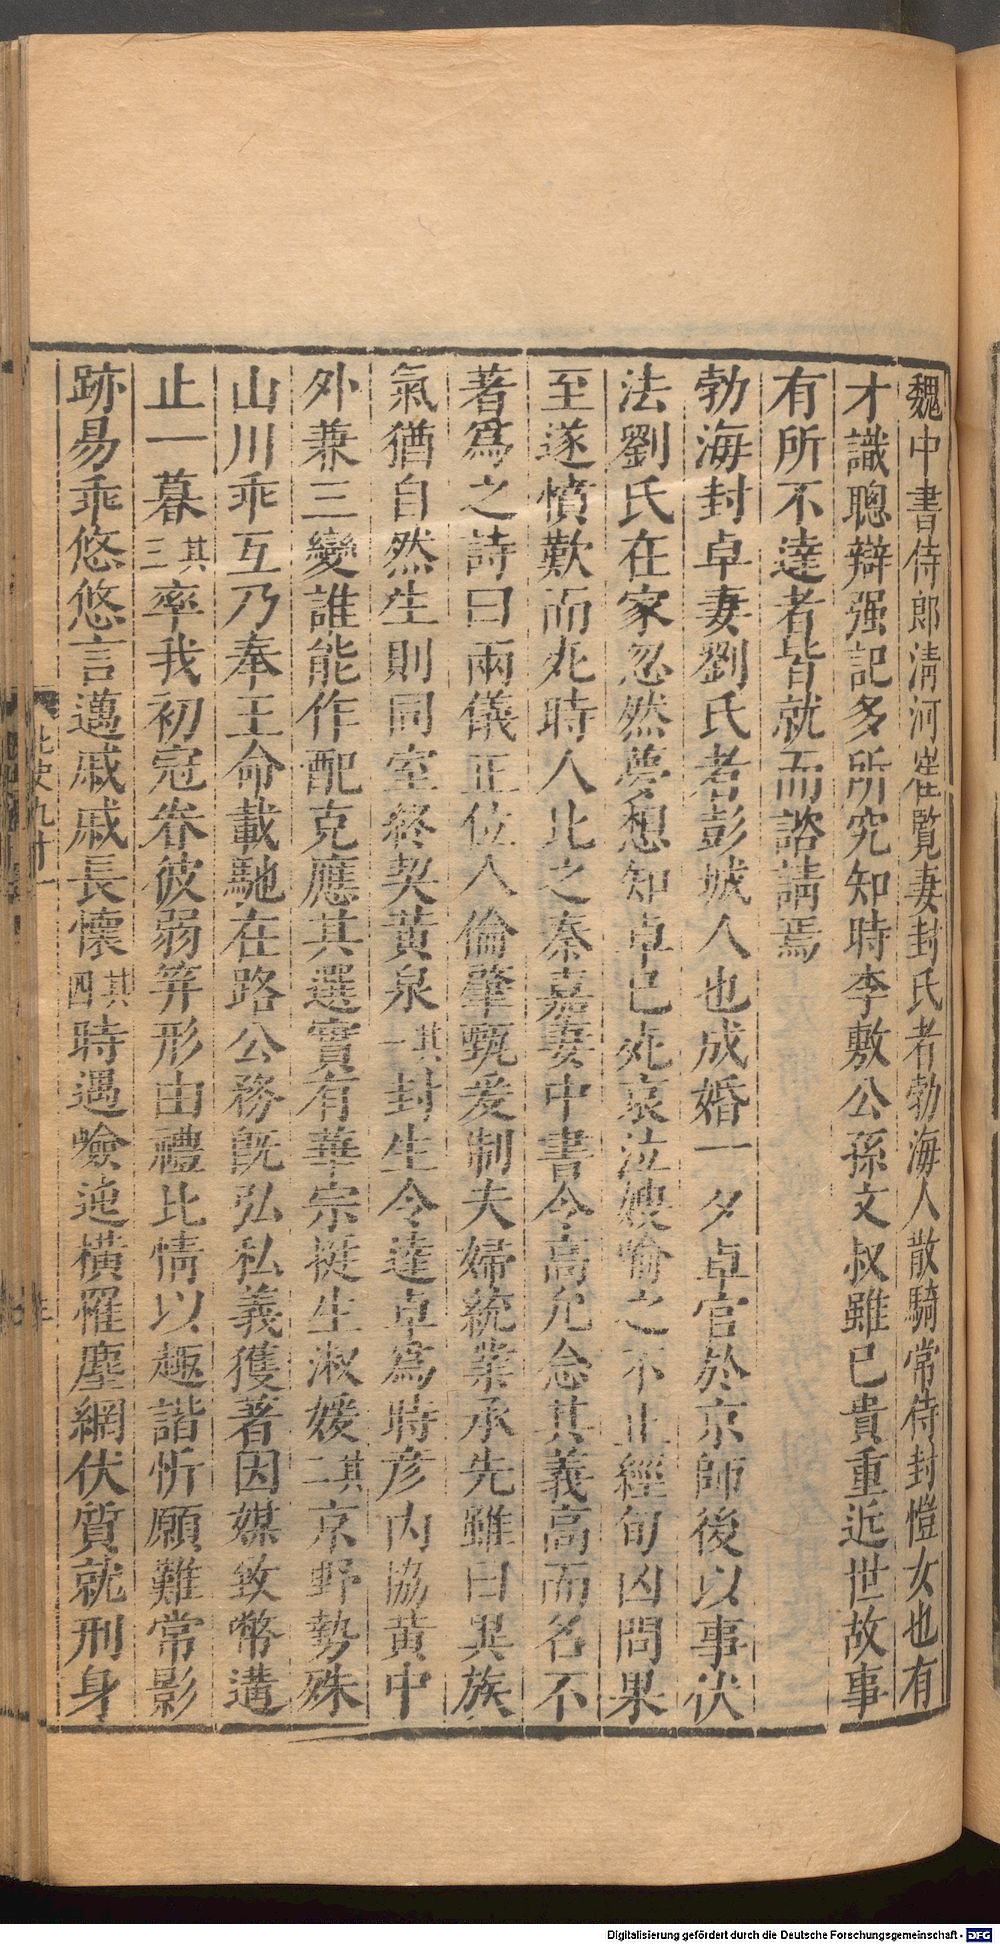 魏中書侍郎清河崔覽妻封氏者勃海人散騎常侍封愷女也有
才識聰辯强記多所究知時李敷公孫文叔雖已貴重近世故事
有所不達者皆就而諮請焉
勃海封卓妻劉氏者彭城人也成婚一夕卓官於京師後以事伏
法劉氏在家忽然夢想知卓已死哀泣嫂喻之不止經旬凶問果
至遂憤歎而死時人比之秦嘉妻中書令高允念其義高而名不
著爲之詩曰兩儀正位人倫肇甄爰制夫婦統業承先雖曰異族
氣猶自然生則同室終契黃泉其一封生令達卓爲時彦內協黃中
外兼三變誰能作配克應其選實有華宗挺生淑媛其二京野勢殊
山川乖互乃奉王命載馳在路公務旣弘私義獲著因媒致幣遘
止一暮其三率我初冠眷彼弱笄形由禮比情以趣諧忻願難常影
跡易乖悠悠言邁戚戚長懷其四時遇險迍橫罹塵網伏質就刑身
北史九十一
Digitalisierung gefördert durch die Deutsche Forschungsgemeinschaft - DFG